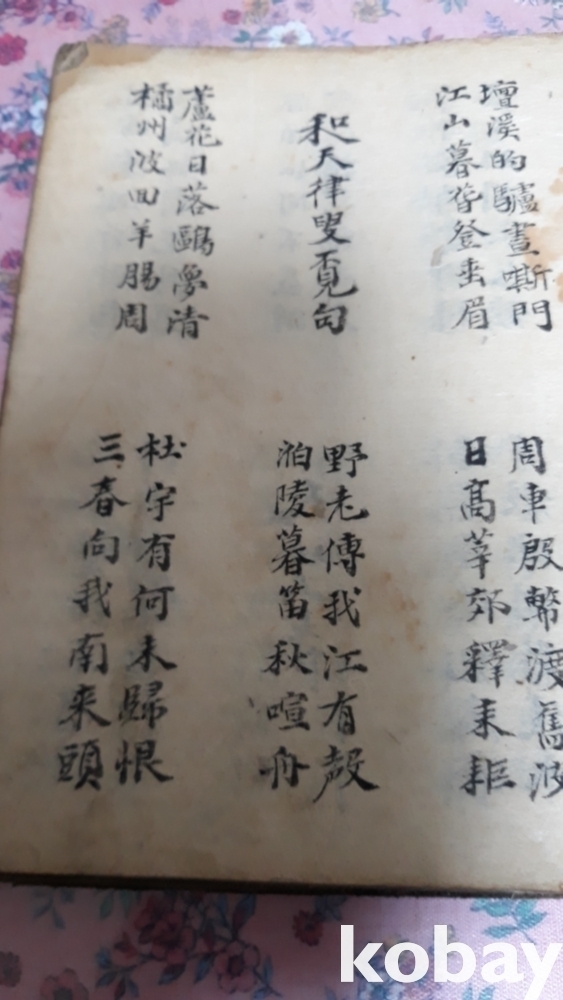 壇溪的驢晝嘶門
江山暮登垂眉
周車殷幣渡舊波
日高莘郊釋耒耟
和天律叟覓句
野老傳我江有聲
泊陵暮笛秋喧舟
蘆花日落鷗夢清
橘州波回羊腸周
杜宇有何未歸恨
三春向我南來頭
kobay